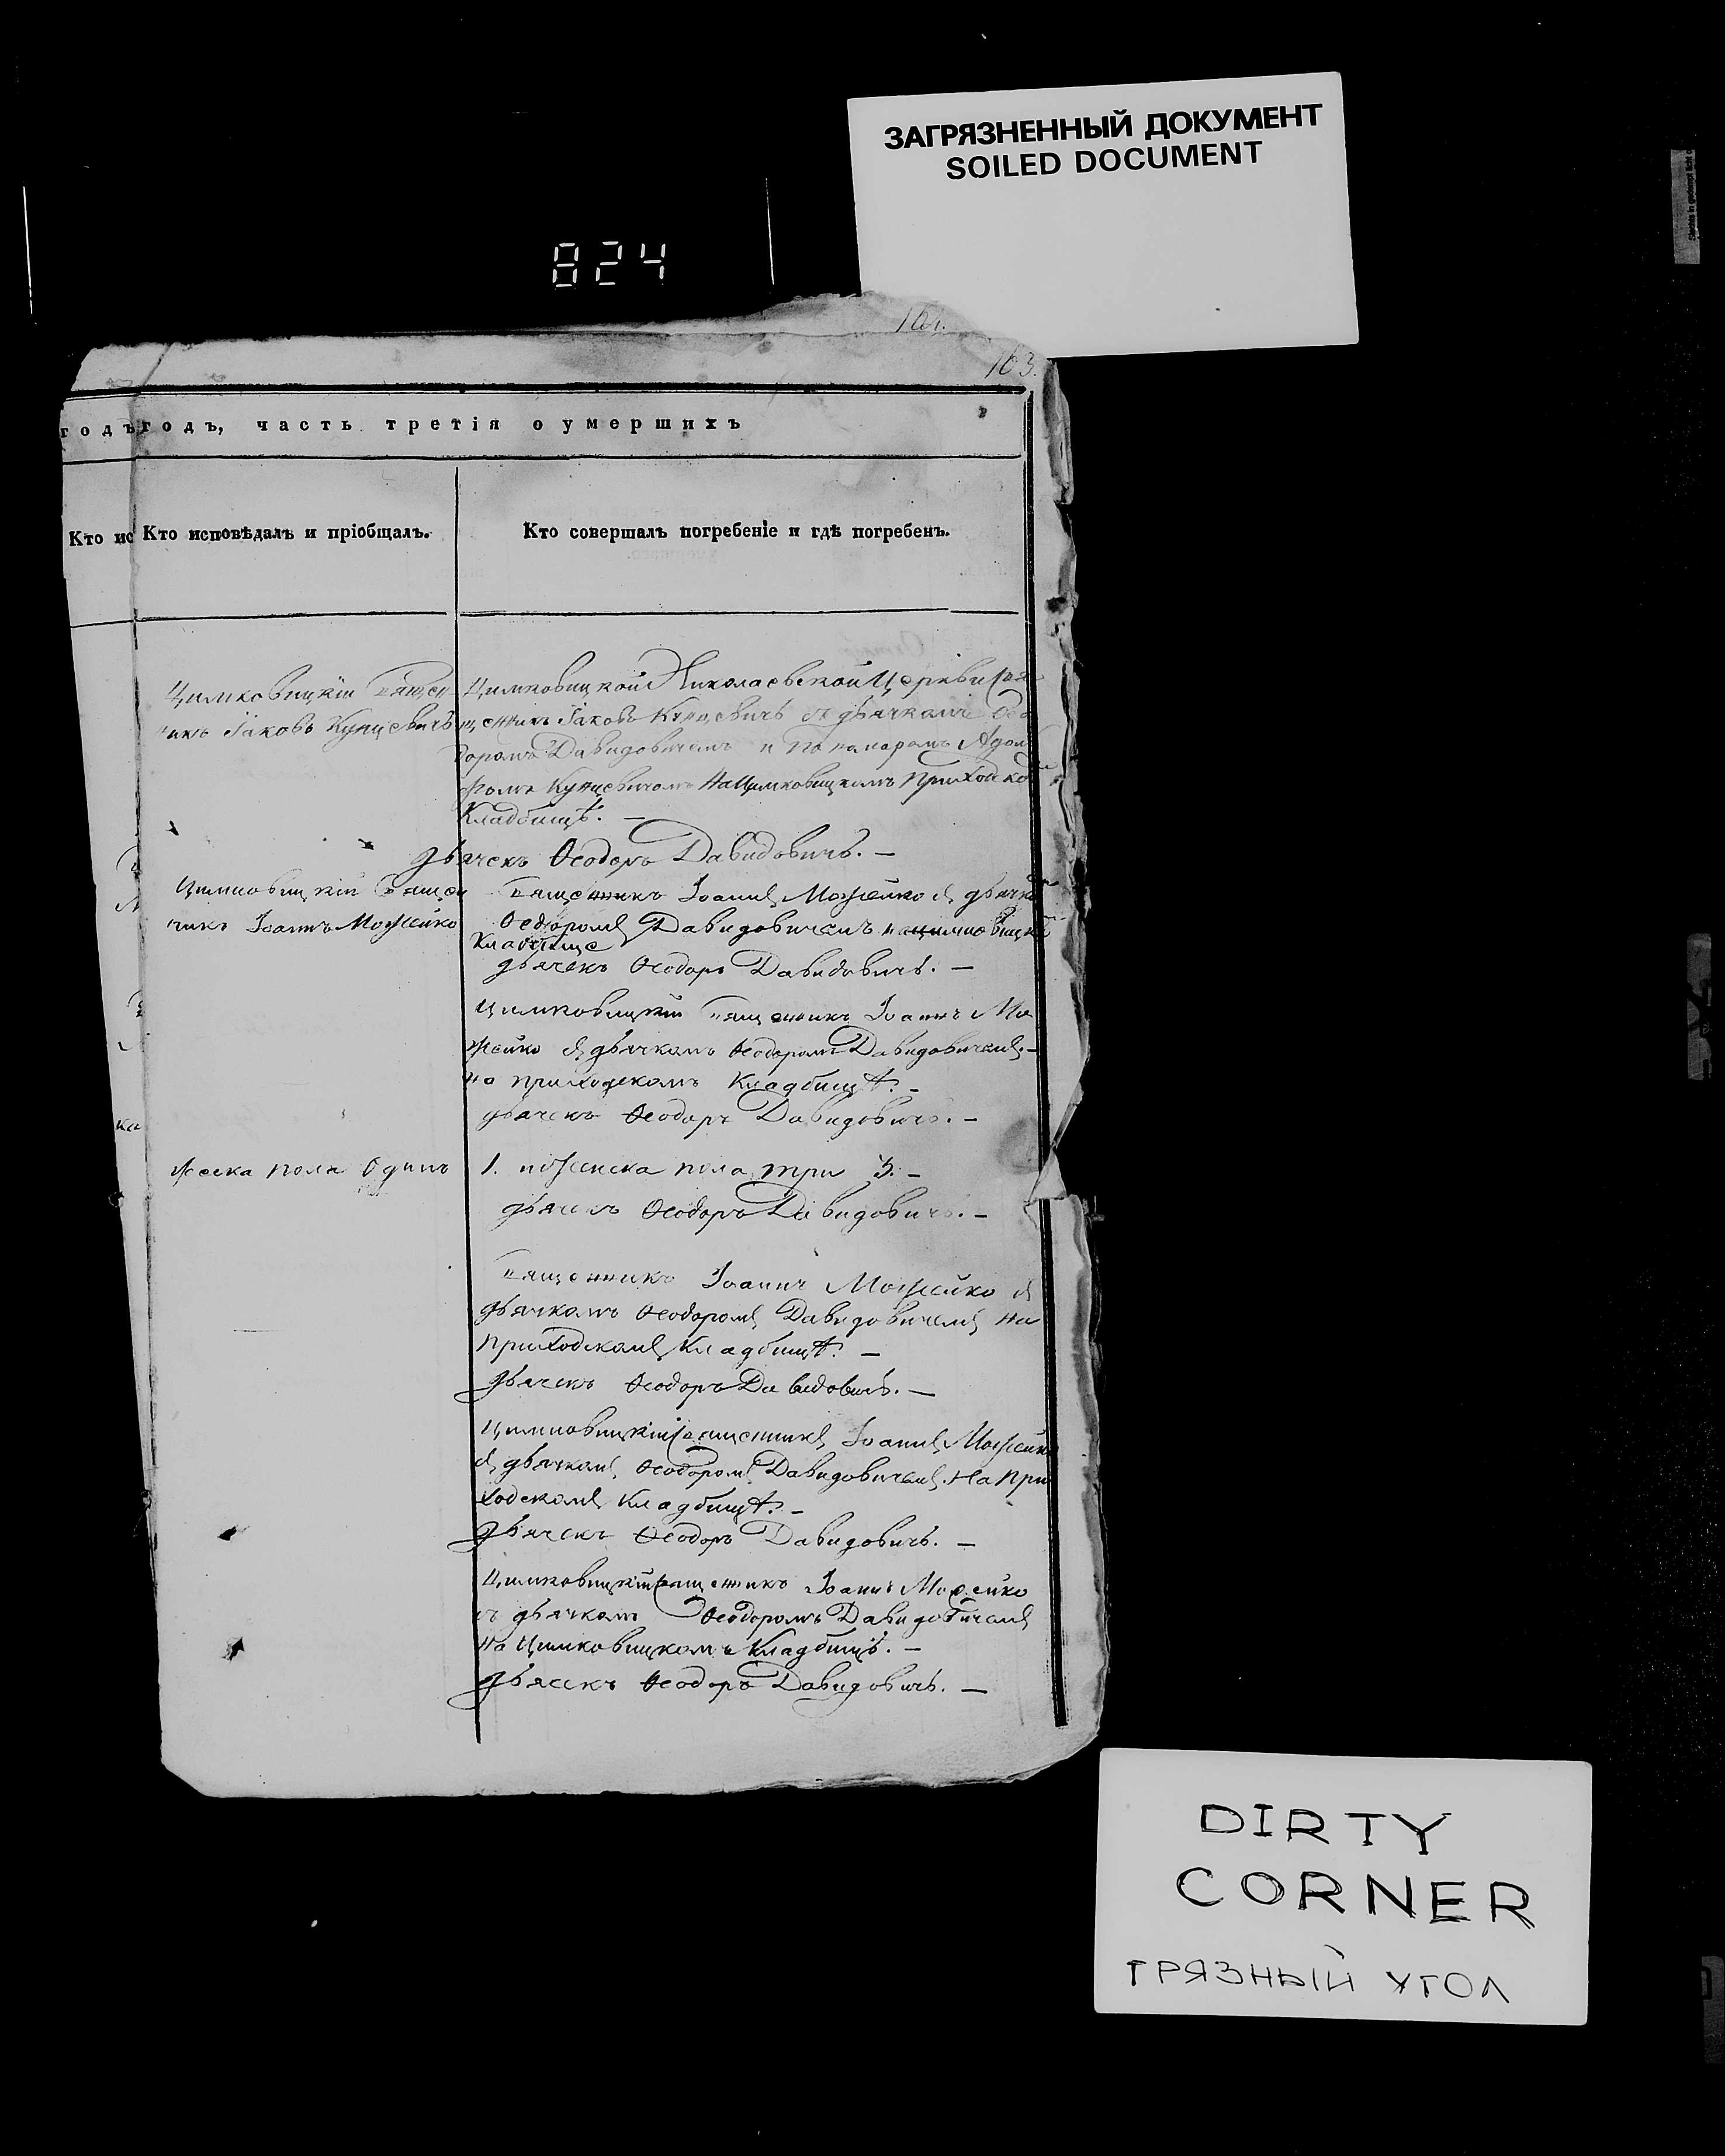 ЗАГРЯЗНЕННЫЙ ДОКУМЕНТ
SOILED DOCUMENT
824
163.
годъ
годъ, часть третія о умершихъ
Кто ис
Кто исповѣдалъ и пріобщалъ.
Кто совершалъ погребеніе и гдѣ погребенъ.
Цимковицкій Священ
никъ Іаковъ Кунцевичъ
Цимковицкой Николаевской Церкви Свя
щенникъ Іаковъ Кунцевичъ съ дьячкомъ Ѳео
доромъ Давидовичемъ и Пономаромъ Адоль
фомъ Кунцевичомъ На Цимковицкомъ Приходско
Кладбищѣ. —
дьячекъ Ѳеодоръ Давидовичъ. —
Цимковицкій Священ
никъ ІоаннъМожейко
Священникъ Іоаннъ Можейко съ дьячко
Ѳеодоромъ Давидовичемъ на цимковицко
Кладбище
дьячекъ Ѳеодоръ Давидовичъ. —
Цимковицкій Священникъ Іоаннъ Мо
жейко съ дьячкомъ Ѳеодоромъ Давидовичемъ. —
на приходскомъ Кладбищѣ. —
дьячекъ Ѳеодоръ Давидовичъ. —
ка
жеска пола Одинъ 1. и женска пола три 3. —
дьячекъ Ѳеодоръ Давидовичъ. —
Священникъ Іоаннъ Можейко съ
дьячкомъ Ѳеодоромъ Давидовичемъ на
приходскомъ Кладбищѣ. —
дьячекъ Ѳеодоръ Давидовичъ. —
Цимковицкій Священникъ Іоаннъ Можейко
съ дьячкомъ Ѳеодоромъ Давидовичемъ. На При
ходскомъ Кладбищѣ. —
дьячекъ Ѳеодоръ Давидовичъ. —
Цимковицкій Священникъ Іоаннъ Можейко
съ дьячкомъ Ѳеодоромъ Давидовичемъ
на Цимковицкомъ Кладбищѣ. —
дьячекъ Ѳеодоръ Давидовичъ. —
DIRTY
CORNER
ГРЯЗНЫЙ УГОЛ